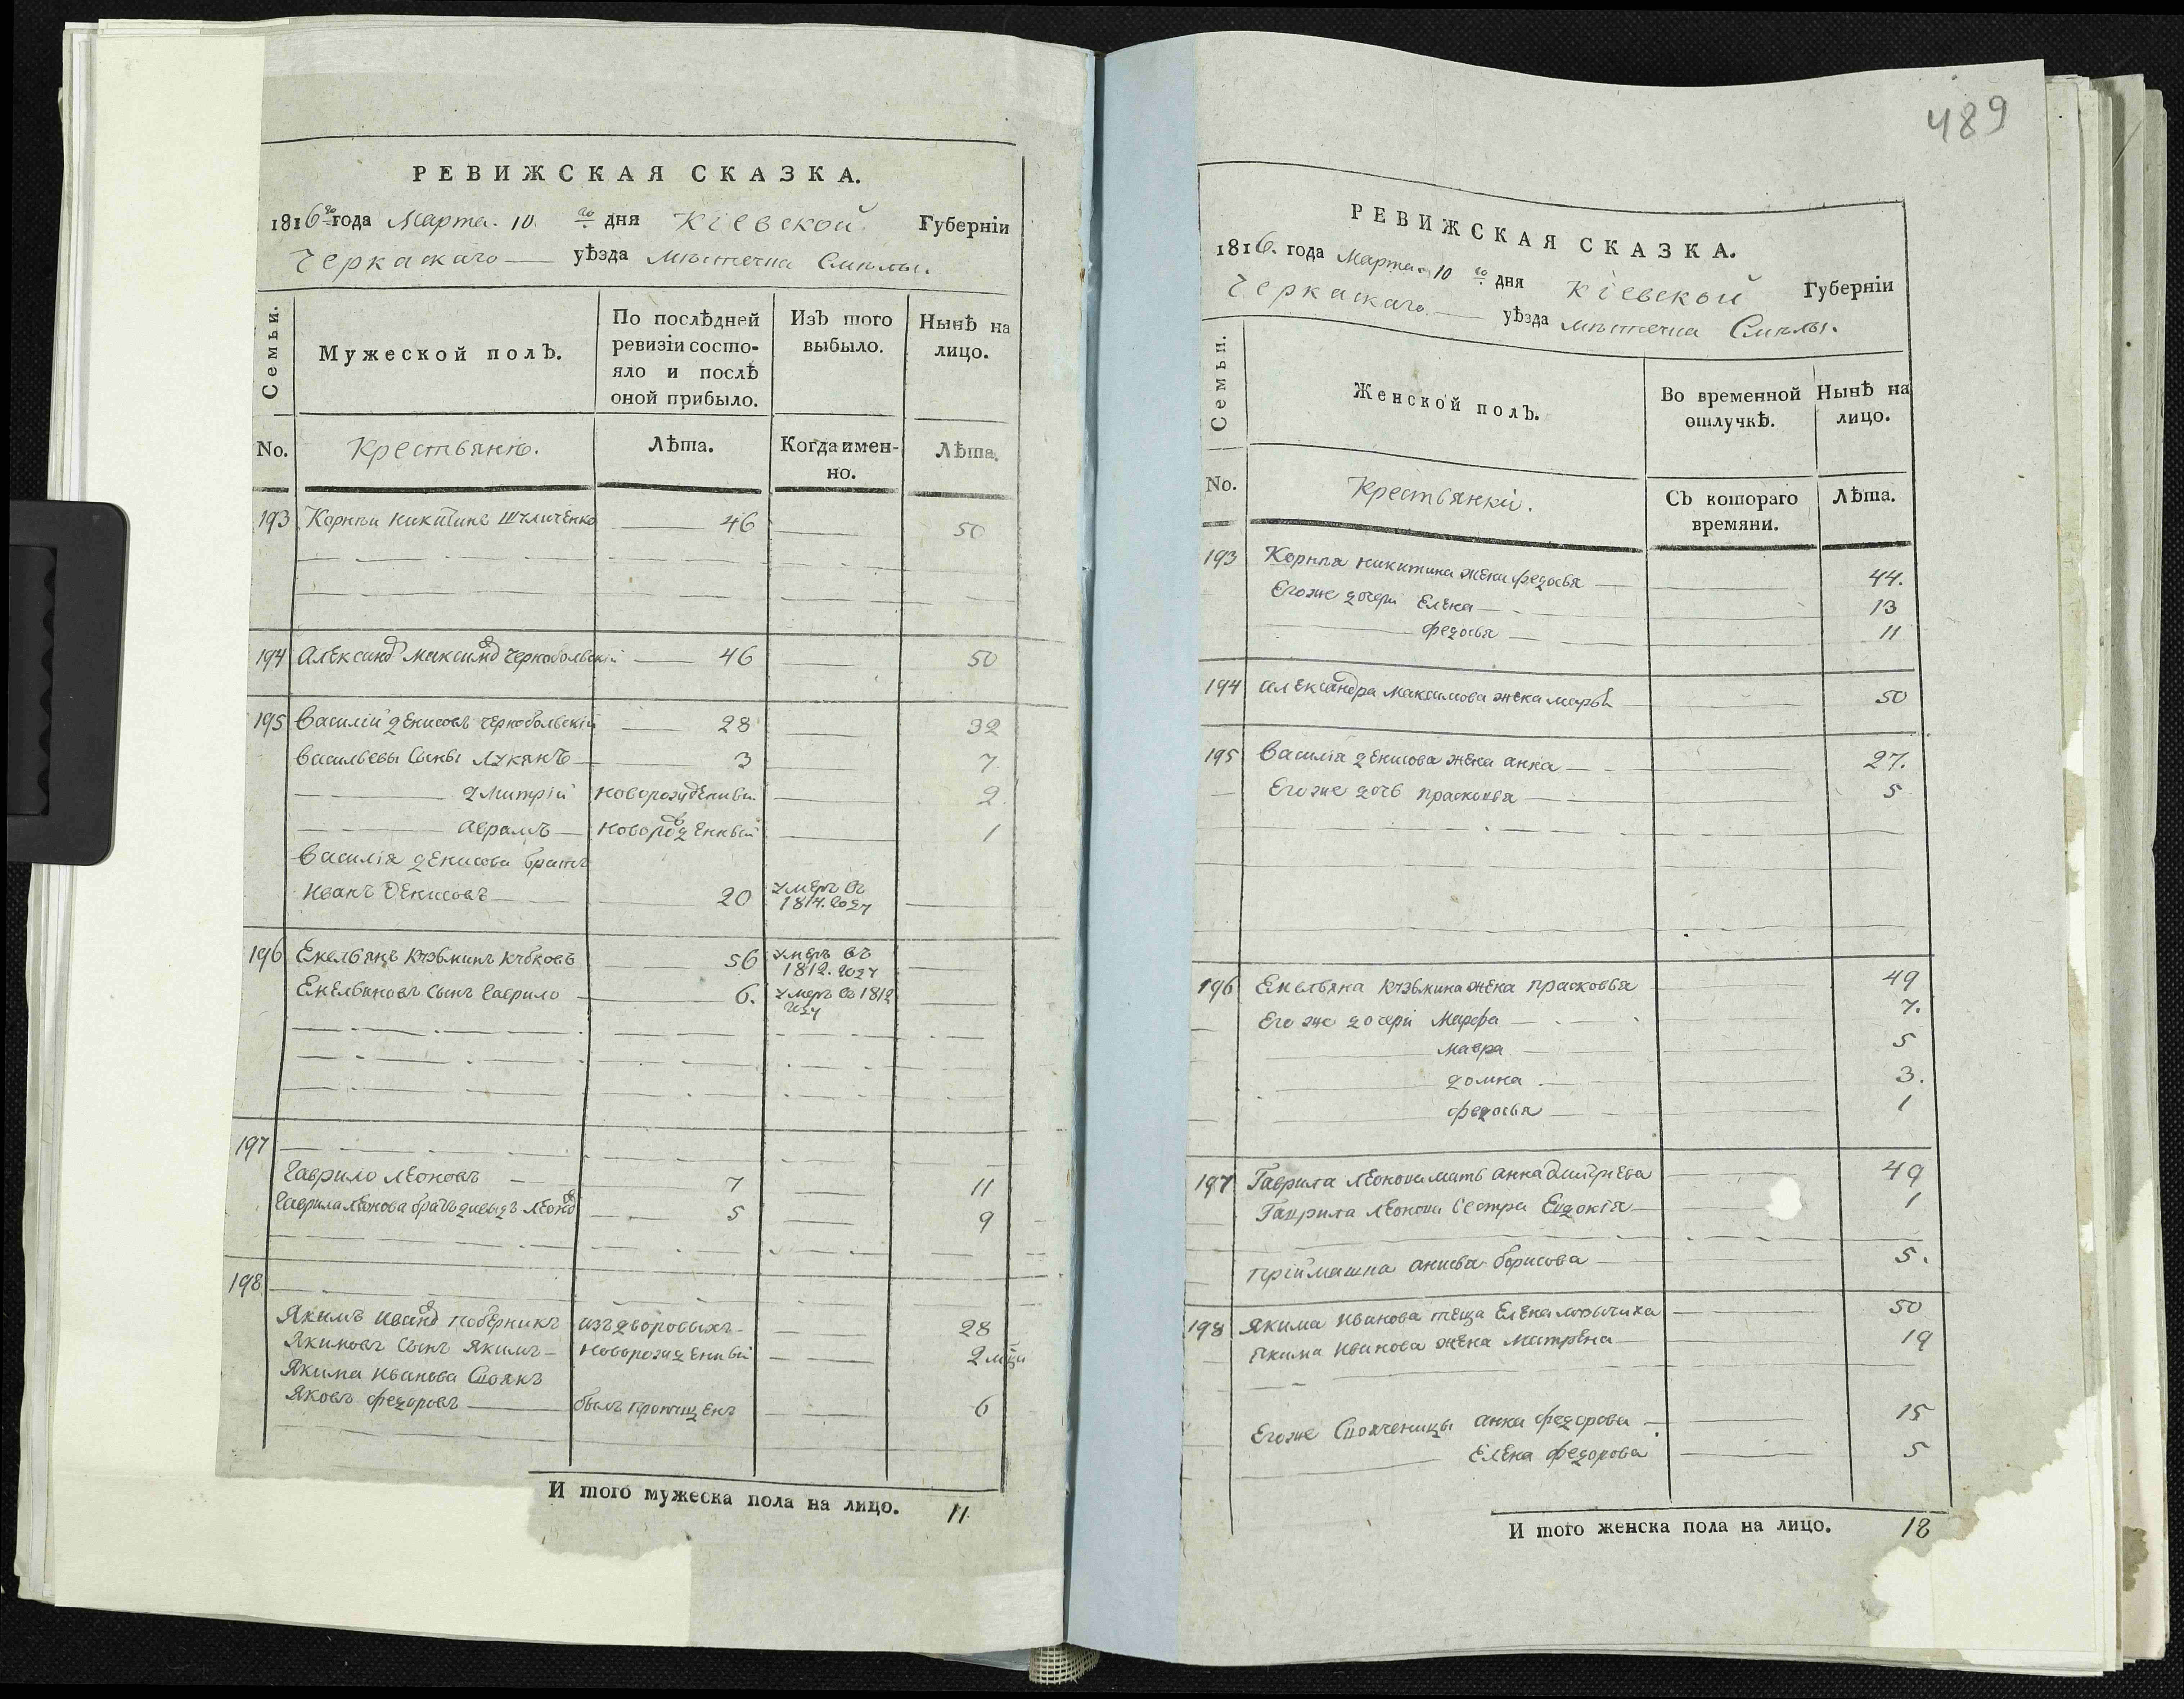 РЕВИЖСКАЯ СКАЗКА.
1816го года Марта. 10. го дня Кіевской Губерніи
Черкаскаго уѣзда мѣстечка Смѣлы.
Семьи.
Мужеской полъ.
По послѣдней ревизіи состояло и послѣ оной прибыло.
Изъ того выбыло.
Нынѣ на лицо.
No. Крестьянѣ. Лѣта. Когда именно. Лѣта.
193 Корнѣи Никитинъ 46 50
194 Александ Максимов Чернобольскій 46 50
195 Василій Денисовъ Чернобольскій 28 32
Васильевы Сыны Лукянъ 3 7
Дмитрій новорожденный 2
Аврамъ новорожденный 1
Василія Денисова братъ
Иванъ Денисовъ 20 умеръ въ 1814. году
196 Емельянъ Кузьминъ Кубковъ 56 умеръ въ 1812. году
Емельяновъ Сынъ Гаврило 6. умеръ въ 1812 году
197
Гаврило Леоновъ 7 11
Гаврила Леонова братъ Давыдъ Леонов 5 9
198
Якимъ Иванов изъ дворовыхъ 28
Якимовъ Сынъ Якимъ новорожденный 2 мѣц
Якима Иванова
Яковъ Федоровъ былъ пропущенъ 6
И того мужеска пола на лицо. 11
489
РЕВИЖСКАЯ СКАЗКА.
1816. года Марта 10 го дня Кіевской Губерніи
Черкаскаго уѣзда мѣстечка Смѣлы.
Семьи.
Женской полъ.
Во временной отлучкѣ.
Нынѣ на лицо.
No. Крестьянки. Съ котораго времяни. Лѣта.
193 Корнѣя Никитина жена Федосья 44.
Егоже дочери Елена 13
Федосья 11
194 Александра Максимова жена Марья 50
195 Василія Денисова жена Анна 27.
Егоже дочь Прасковья 5
196 Емельяна Кузьмина жена Прасковья 49
Егоже дочери Марфа 7.
Мавра 5
Домна 3.
Федосья 1
197 Гаврила Леонова мать Анна Дмитріева 49
Гаврила Леонова Сестра Евдокія 1
Борисова 5.
198 Якима Иванова теща Елена 50
Якима Иванова жена Матрена 19
Егоже Анна Федорова 15
Елена Федорова 5
И того женска пола на лицо. 18